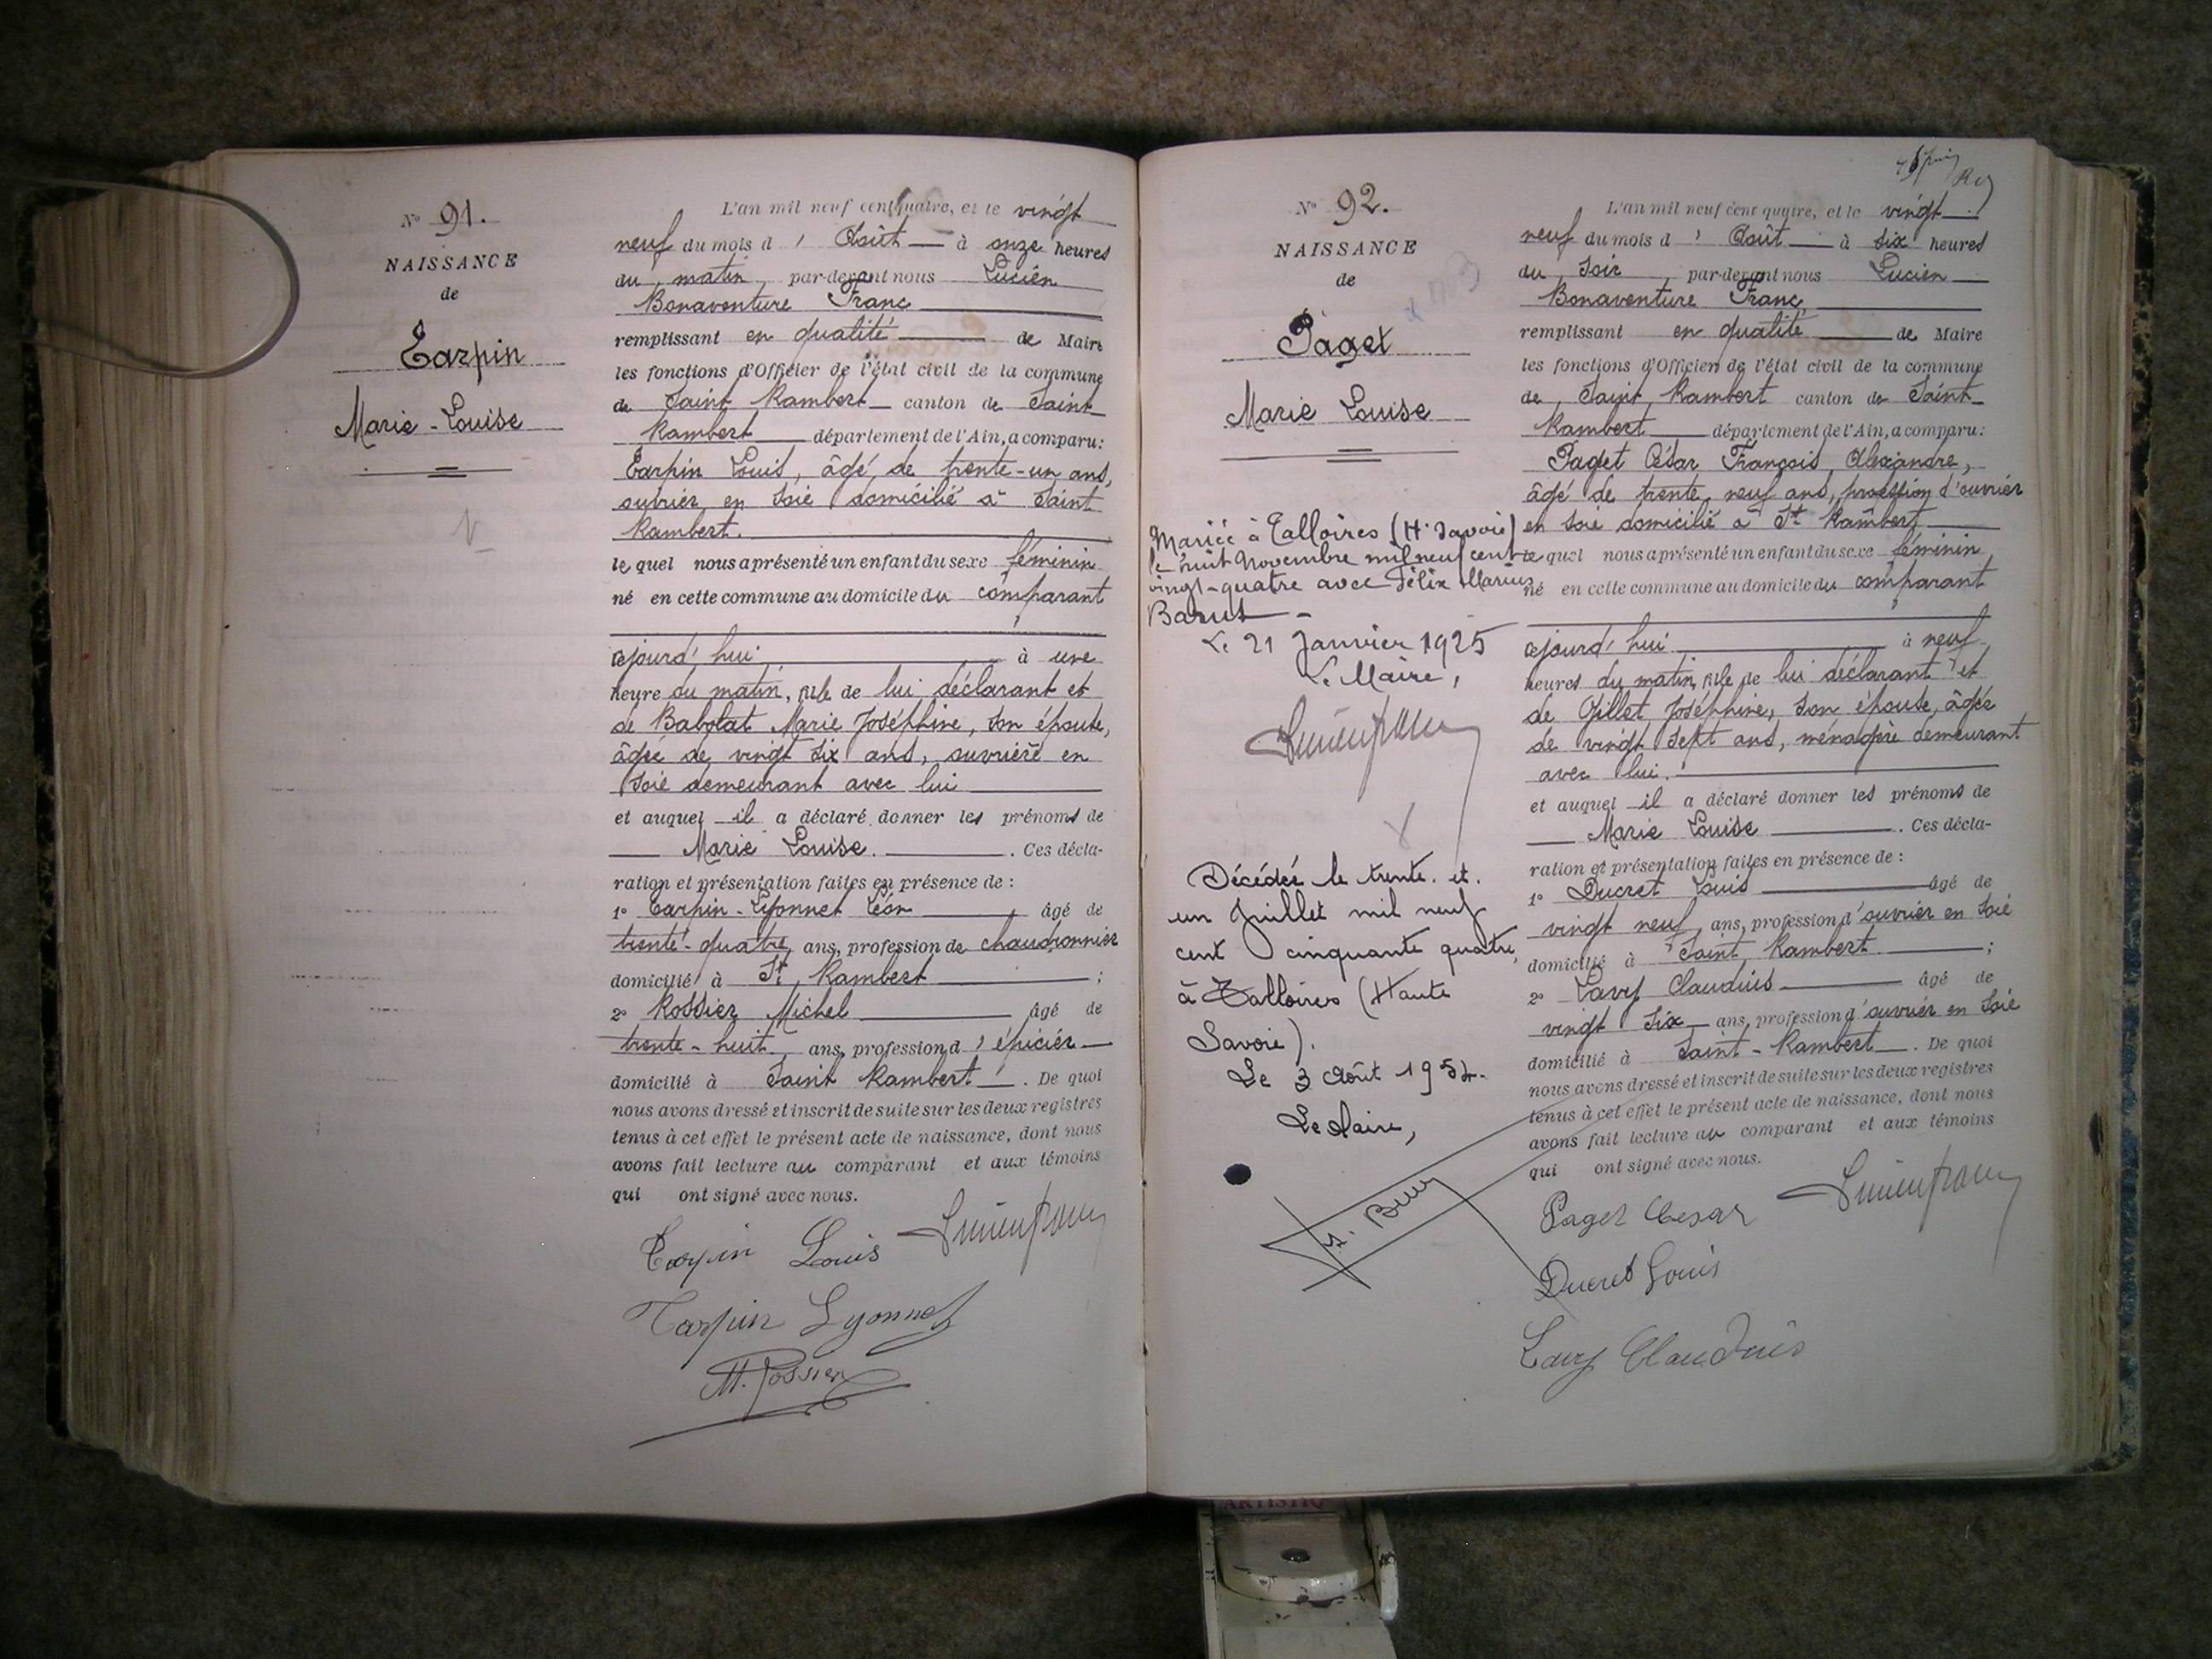 N° 91.
NAISSANCE
de
Tarpin
Marie-Louise
L'an mil neuf cent quatre, et le vingt
neuf du mois d' Août à onze heures
du matin par-devant nous Lucien
Bonaventure Franc
remplissant en qualité de Maire
les fonctions d'Officier de l'état civil de la commune
de Saint Rambert canton de Saint
Rambert département de l'Ain, a comparu:
Tarpin Louis, âgé de trente-un ans,
ouvrier en soie domicilié à Saint
Rambert.
le quel nous a présenté un enfant du sexe féminin
né en cette commune au domicile du comparant
cejourd'hui à une
heure du matin, fille de lui déclarant et
de Babolat Marie Joséphine, son épouse,
âgée de vingt six ans, ouvrière en
soie demeurant avec lui
et auquel il a déclaré donner les prénoms de
Marie Louise. . Ces décla-
ration et présentation faites en présence de :
1° Tarpin-Lyonnet Léon âgé de
trente-quatre ans, profession de chaudronnier
domicilié à St Rambert ;
2° Rossier Michel âgé de
trente-huit ans, profession d'épicier
domicilié à Saint Rambert . De quoi
nous avons dressé et inscrit de suite sur les deux registres
tenus à cet effet le présent acte de naissance, dont nous
avons fait lecture au comparant et aux témoins
qui ont signé avec nous.
Tarpin Louis Lucien Franc
Tarpin Lyonnet
M. Rossier
N° 92.
NAISSANCE
de
Paget
Marie Louise
Mariée à Talloires (Hte Savoie)
le huit Novembre mil neuf cent
vingt-quatre avec Félix Marius
Le 21 Janvier 1925
Le Maire,
Lucien Franc
Décédée le trente et
un Juillet mil neuf
cent cinquante quatre,
à Talloires (Haute
Savoie).
Le 3 Août 1954.
Le Maire,
L'an mil neuf cent quatre, et le vingt
neuf du mois d' Août à six heures
du soir par-devant nous Lucien
Bonaventure Franc
remplissant en qualité de Maire
les fonctions d'Officier de l'état civil de la commune
de Saint Rambert canton de Saint
Rambert département de l'Ain, a comparu:
Paget César François Alexandre,
âgé de trente neuf ans, profession d'ouvrier
en soie domicilié à St Rambert
le quel nous a présenté un enfant du sexe féminin
né en cette commune au domicile du comparant
cejourd'hui à neuf
heures du matin, fille de lui déclarant et
de Gillet Joséphine, son épouse, âgée
de vingt sept ans, ménagère demeurant
avec lui.
et auquel il a déclaré donner les prénoms de
Marie Louise . Ces décla-
ration et présentation faites en présence de :
1° Ducret Louis âgé de
vingt neuf ans, profession d'ouvrier en soie
domicilié à Saint Rambert ;
2° Lavy Claudius âgé de
vingt six ans, profession d'ouvrier en soie
domicilié à Saint-Rambert . De quoi
nous avons dressé et inscrit de suite sur les deux registres
tenus à cet effet le présent acte de naissance, dont nous
avons fait lecture au comparant et aux témoins
qui ont signé avec nous.
Paget Cesar Lucien Franc
Ducret Louis
Lavy Claudius
ARTISTIQ